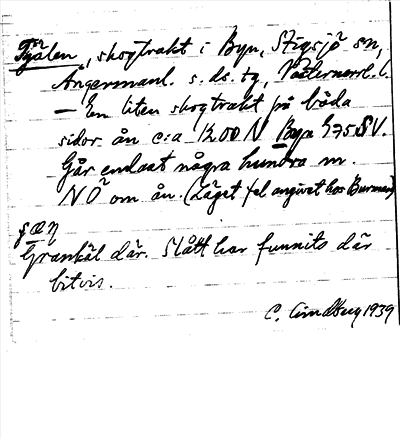 Tjälen, skogtrakt i Byn, Stigsjö sn,
Ångermanl. s. ds. tg, Västernorrl. l.
– En liten skogtrakt på båda
sidor ån c:a 1200 N Byn 575 S V.
Går endast några hundra m.
NÖ om ån. (Läget fel angivet hos Burman)
Grankäl där. Slått har funnits där
bitvis.
C. Lindberg 1939